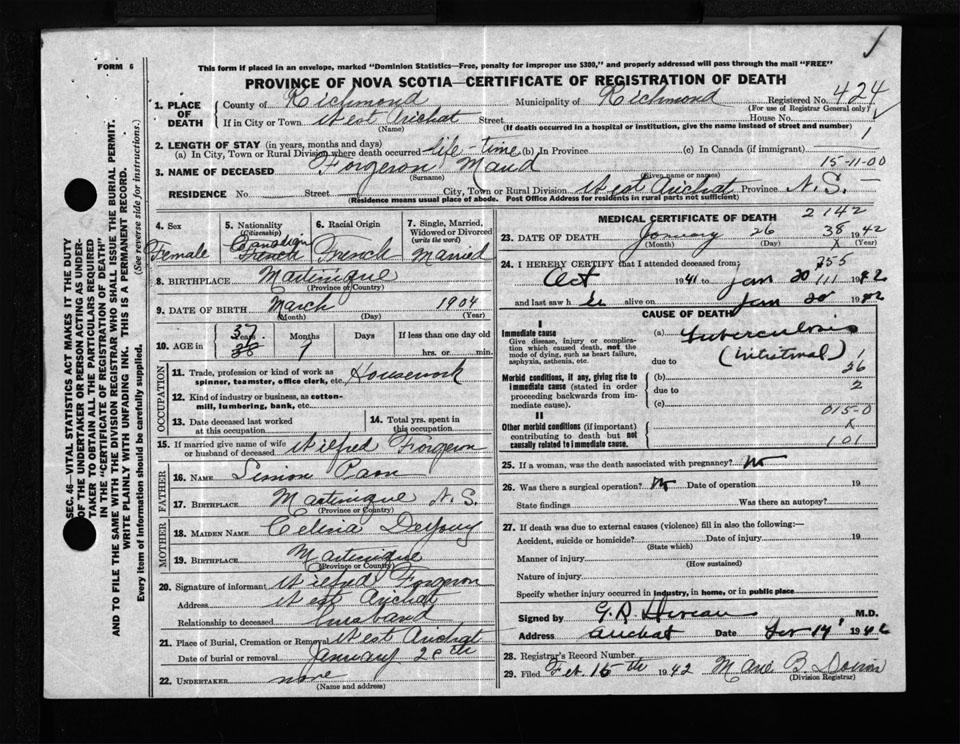 FORM 6
This form if placed in an envelope, marked "Dominion Statistics—Free, penalty for improper use $300," and properly addressed will pass through the mail "FREE"
PROVINCE OF NOVA SCOTIA—CERTIFICATE OF REGISTRATION OF DEATH
SEC. 46—VITAL STATISTICS ACT MAKES IT THE DUTY
OF THE UNDERTAKER OR PERSON ACTING AS UNDERTAKER
TO OBTAIN ALL THE PARTICULARS REQUIRED
IN THE "CERTIFICATE OF REGISTRATION OF DEATH"
AND TO FILE THE SAME WITH THE DIVISION REGISTRAR WHO SHALL ISSUE THE BURIAL PERMIT.
WRITE PLAINLY WITH UNFADING INK. THIS IS A PERMANENT RECORD.
Every item of information should be carefully supplied. (See reverse side for instructions.)
1. PLACE OF DEATH
County of Richmond Municipality of Richmond Registered No. 424
(For use of Registrar General only)
If in City or Town West Arichat Street House No.
(Name) (If death occurred in a hospital or institution, give the name instead of street and number)
2. LENGTH OF STAY (in years, months and days) 1
(a) In City, Town or Rural Division where death occurred life-time (b) In Province (c) In Canada (if immigrant)
3. NAME OF DECEASED Forgeron Maud 15-11-00
(Surname) (Given name or names)
RESIDENCE No. Street City, Town or Rural Division West Arichat Province N.S.
(Residence means usual place of abode. Post Office Address for residents in rural parts not sufficient)
4. Sex Female
5. Nationality (Citizenship) Canadian French
6. Racial Origin French
7. Single, Married, Widowed or Divorced (write the word) Married
8. BIRTHPLACE Martinique
(Province or Country)
9. DATE OF BIRTH March 1904
(Month) (Day) (Year)
10. AGE in 37 Years 38 Months 9 Days If less than one day old hrs. or min.
OCCUPATION
11. Trade, profession or kind of work as spinner, teamster, office clerk, etc. Housework
12. Kind of industry or business, as cotton-mill, lumbering, bank, etc.
13. Date deceased last worked at this occupation
14. Total yrs. spent in this occupation
15. If married give name of wife or husband of deceased Wilfred Forgeron
FATHER
16. NAME Simon
17. BIRTHPLACE Martinique N.S.
(Province or Country)
MOTHER
18. MAIDEN NAME Celina DeYoung
19. BIRTHPLACE Martinique
(Province or Country)
20. Signature of informant Wilfred Forgeron
Address West Arichat
Relationship to deceased husband
21. Place of Burial, Cremation or Removal West Arichat
Date of burial or removal January 28th
22. UNDERTAKER none
(Name and address)
MEDICAL CERTIFICATE OF DEATH 2142
23. DATE OF DEATH January 26 38 1942
(Month) (Day) X (Year)
24. I HEREBY CERTIFY that I attended deceased from: 755
Oct 1941 to Jan 20 111 1942
and last saw her alive on Jan 20 1942
CAUSE OF DEATH
I
Immediate cause
Give disease, injury or complication which caused death, not the mode of dying, such as heart failure, asphyxia, asthenia, etc.
(a) Tuberculosis
due to (Intestinal) 1
26
Morbid conditions, if any, giving rise to immediate cause (stated in order proceeding backwards from immediate cause).
(b)
due to 2
(c) 015-0
II
Other morbid conditions (if important) contributing to death but not causally related to immediate cause.
X
101
25. If a woman, was the death associated with pregnancy? No
26. Was there a surgical operation? No Date of operation 19
State findings Was there an autopsy?
27. If death was due to external causes (violence) fill in also the following:—
Accident, suicide or homicide? Date of injury 19
(State which)
Manner of injury
(How sustained)
Nature of injury
Specify whether injury occurred in industry, in home, or in public place
Signed by G.R. M.D.
Address Arichat Date Feb 14 1942
28. Registrar's Record Number
29. Filed Feb. 15th 1942
(Division Registrar)